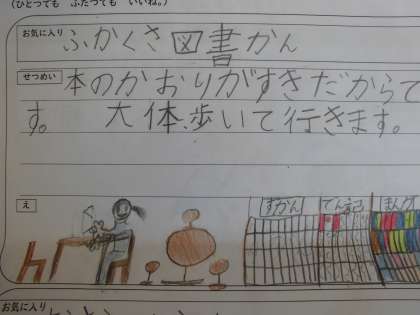 (ひとつでも ふたつでも いいね。)
お気に入り
ふかくさ図書かん
せつめい
本のかおりがすきだからで
す。 大体、歩いて行きます。
え
ずかん
でん記
まんが
お気に入り